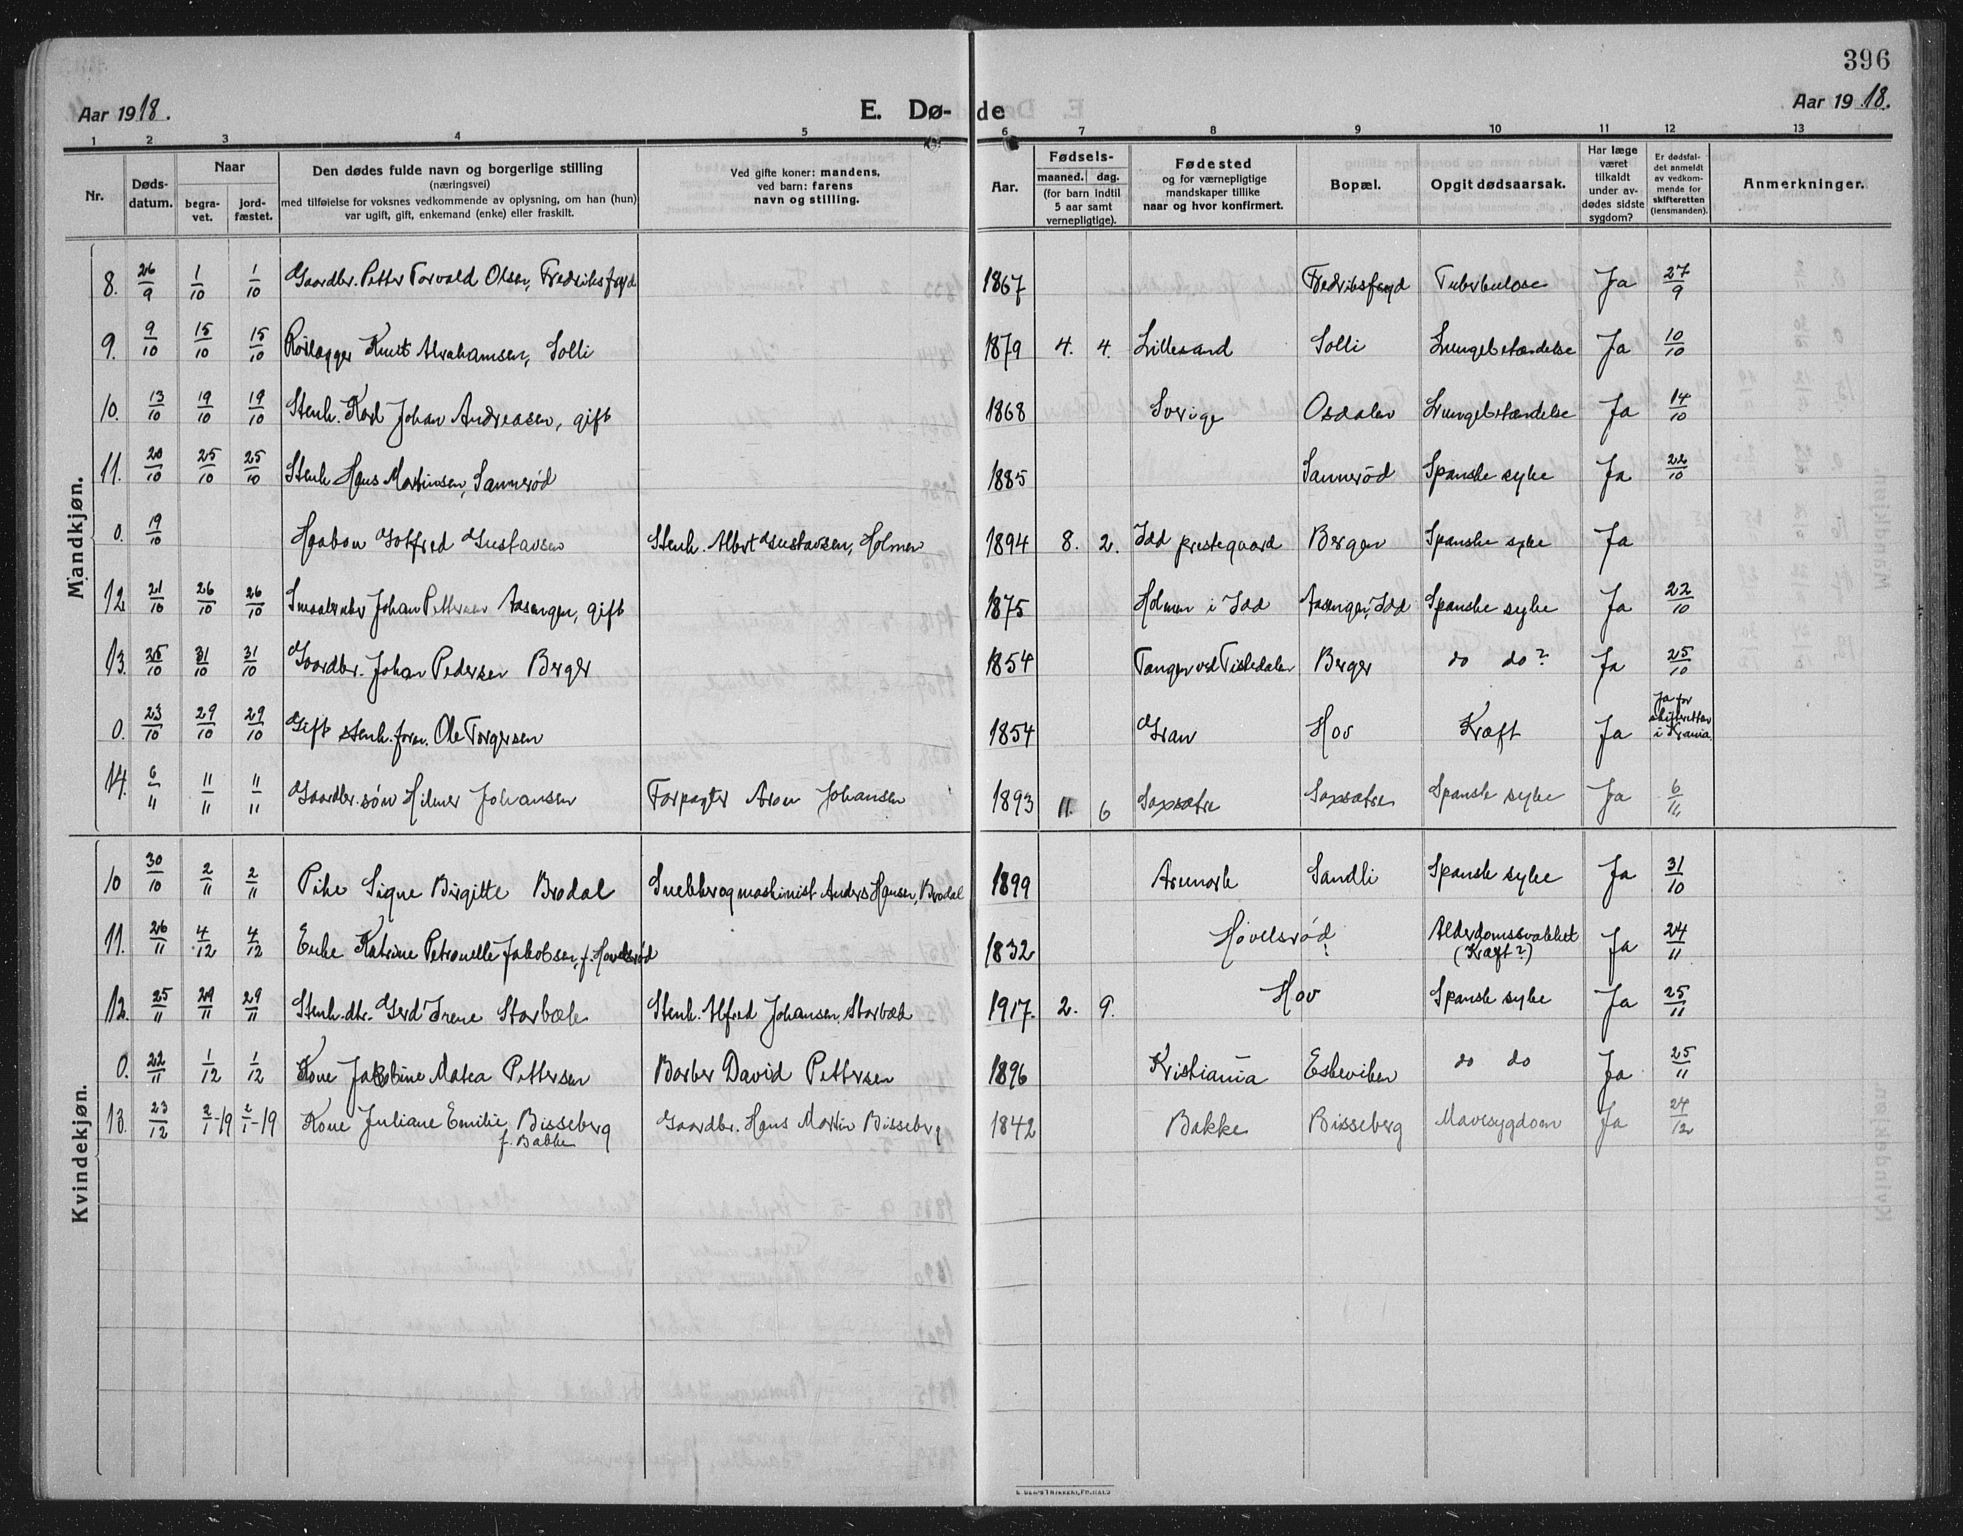 396
Aar 1918. E. Dø- de Aar 1918.
1 2 3 4 5 6 7 8 9 10 11 12 13
Nr.
Døds-
datum.
Naar
begra-
vet.
jord-
fæstet.
Den dødes fulde navn og borgerlige stilling
(næringsvei)
med tilføielse for voksnes vedkommende av oplysning, om han (hun)
var ugift, gift, enkemand (enke) eller fraskilt.
Ved gifte koner: mandens,
ved barn: farens
navn og stilling.
Aar.
Fødsels-
maaned. dag.
(for barn indtil
5 aar samt
vernepligtige).
Fødested
og for værnepligtige
mandskaper tillike
naar og hvor konfirmert.
Bopæl.
Opgit dødsaarsak.
Har læge
været
tilkaldt
under av-
dødes sidste
sygdom?
Er dødsfal-
det anmeldt
av vedkom-
mende for
skifteretten
(lensmanden).
Anmerkninger.
Mandkjøn.
8. 26/9 1/10 1/10 Gaardbr. Petter Torvald Olsen, Fredriksfryd 1867 Fredriksfryd Tuberkulose Ja 27/9
9. 9/10 15/10 15/10 Knut Abrahamsen, Solli 1879 4. 4. Lillesand Solli Lungebetændelse Ja 10/10
10. 13/10 19/10 19/10 Stenh. Karl Johan Andreasen, gift 1868 Sverige Osdalen Lungebetændelse Ja 14/10
11. 20/10 25/10 25/10 Stenh Hans Martinsen, Sannerød 1885 Sannerød Spanske syke Ja 22/10
0. 19/10 Haakon Gotfred Gustavsen Stenh. Albert Gustavsen, Holmen 1894 8. 2. Idd prestegaard Bergen Spanske syke Ja
12 21/10 26/10 26/10 Smaabruker Johan Pettersen Aasengen, gift 1875 Holmen i Idd Aasengen, Idd Spanske syke Ja 22/10
13. 25/10 31/10 31/10 Gaardbr. Johan Pedersen Berger 1854 Tangen ved Tistedalen Berger do do? Ja 25/10
0. 23/10 29/10 29/10 Gift stenh.form. Ole Torgersen 1854 Gran Hov Kræft Ja Ja for skifteretten i Krania.
14. 6/11 11/11 11/11 Gaardbr.søn Hilmer Johansen Forpagter Aron Johansen 1893 11. 6 Saxsætre Saxsætre Spansk syke Ja 6/11
Kvindekjøn.
10 30/10 2/11 2/11 Pike Signe Birgitte Brodal Snekker og maskinist Anders Hansen, Brodal 1899 Aremark Sandli Spansk syke Ja 31/10
11. 26/11 4/12 4/12 Enke Katrine Petronelle Jakobsen, f. Hovelsrød 1832 Hovelsrød? Alderdomssvakhet (Kræft?) Ja 24/11
12. 25/11 29/11 29/11 Stenh.dtr. Gerd Irene Storbæk Stenh. Alfred Johansen Storbæk 1917. 2. 9. Hov Spansk syke Ja 25/11
0. 22/11 1/12 1/12 Kone Jakobine Matea Pettersen Barber David Pettersen 1896 Kristiania Eskeviken do do Ja 25/11
13. 23/12 2/1-19 2/1-19 Kone Juliane Emilie Bisseberg f. Bakke Gaardbr. Hans Martin Bisseberg 1842 Bakke Bisseberg Mavesygdom Ja 24/12